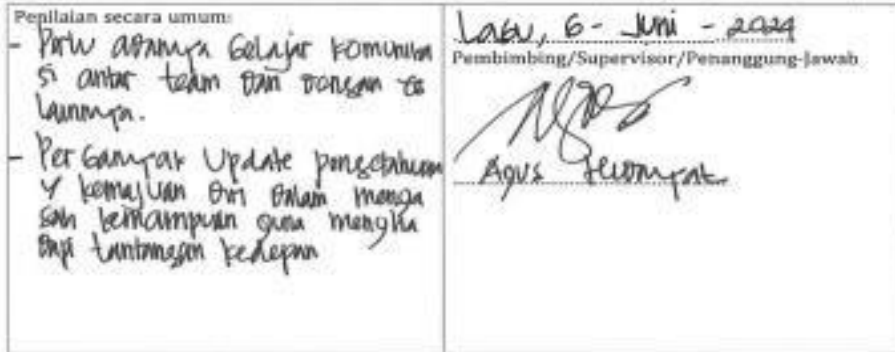 Penilaian secara umum:
- Perlu adanya belajar komunika
si antar team dan dengan
lainnya.
- Perbanyak Update pengetahuan
y kemajuan diri dalam menga
sah kemampuan guna mengha
dapi tantangan kedepan
Labu, 6 - Juni - 2024
Pembimbing/Supervisor/Penanggung-Jawab
Agus